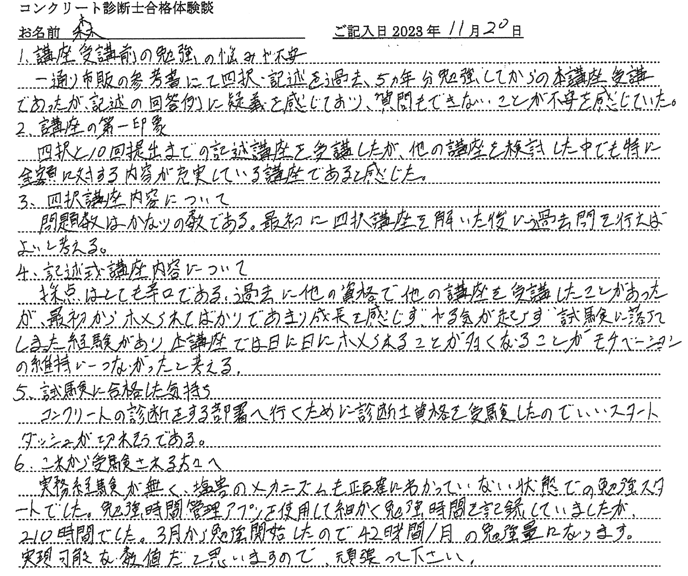 コンクリート診断士合格体験談
お名前 森 ご記入日 2023年11月20日
1.講座受講前の勉強の悩みや不安
一通り市販の参考書にて四択・記述を過去、5ヵ年分勉強してからの本講座受講
であったが、記述の回答例に疑義を感じており、質問もできないことが不安を感じていた。
2.講座の第一印象
四択と10回提出までの記述講座を受講したが、他の講座を検討した中でも特に
金額に対する内容が充実している講座であると感じた。
3、四択講座内容について
問題数はかなりの数である。最初に四択講座を解いた後に過去問を行えば
よいと考える。
4、記述式講座内容について
採点はとても辛口である、過去に他の資格で他の講座を受講したことがあった
が、最初からホメられてばかりであまり成長を感じず、やる気が起らず試験に落ちて
しまった経験があり本講座では日に日にホメられることが多くなることがモチベーション
の維持につながったと考える。
5、試験に合格した気持ち
コンクリートの診断をする部署へ行くために診断士資格を受験したのでいいスタート
ダッシュが切れそうである。
6、これから受験される方々へ
実務経験が無く、塩害のメカニズムも正確に分かっていない状態での勉強スタ
ートでした。勉強時間管理アプリを使用して細かく勉強時間を記録していましたが、
210時間でした。3月から勉強開始したので42時間/月の勉強量になります。
実現可能な数値だと思いますので、頑張って下さい。